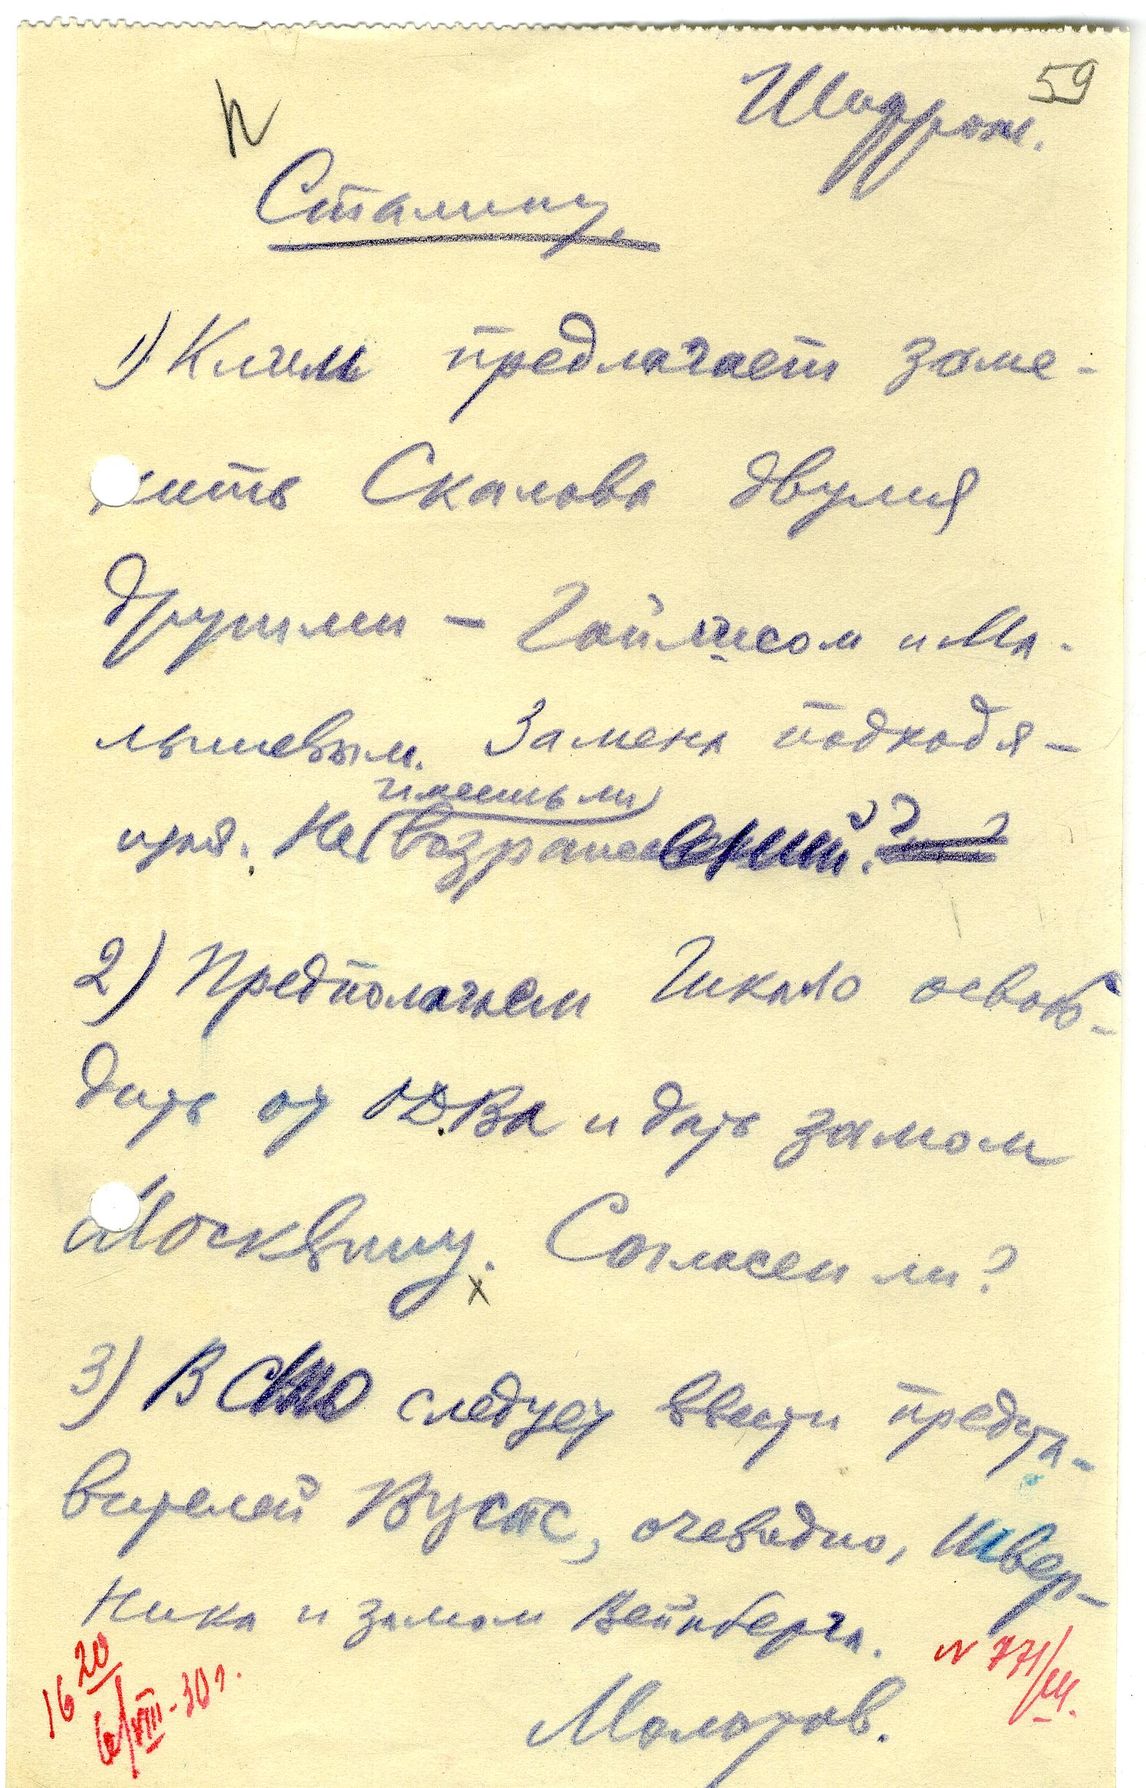 59
Шифром.
Сталину.
1) Клим предлагает заме-
нить Скалова двумя
другими — Гайлисом и Ма-
лышевым. Замена подходя-
щая. Не имеешь ли
возражений?
2) Предполагаем Гикало освобо-
дить от ОДВА и дать замом
Москвину. Согласен ли?
3) В СТО следует ввести предста-
вителей ВЦСПС, очевидно, Швер-
ника и замом Вейнберга.
16 20
6/VIII-30 г.
Молотов.